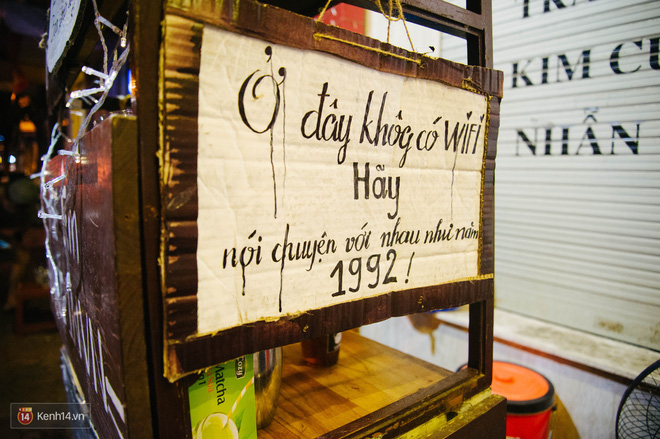 Ở đây khôg có WiFi
Hãy
nói chuyện với nhau như năm
1992!
KIM CƯ
NHẪN
Matcha
14 Kenh14.vn